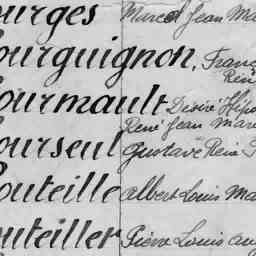 ourges Marcel Jean Ma
ourguignon, Franç
René
ourmault Désiré Hipo
René Jean Mar
ourseul Gustave René
outeille Albert Louis Ma
outeiller Pierre Louis Au